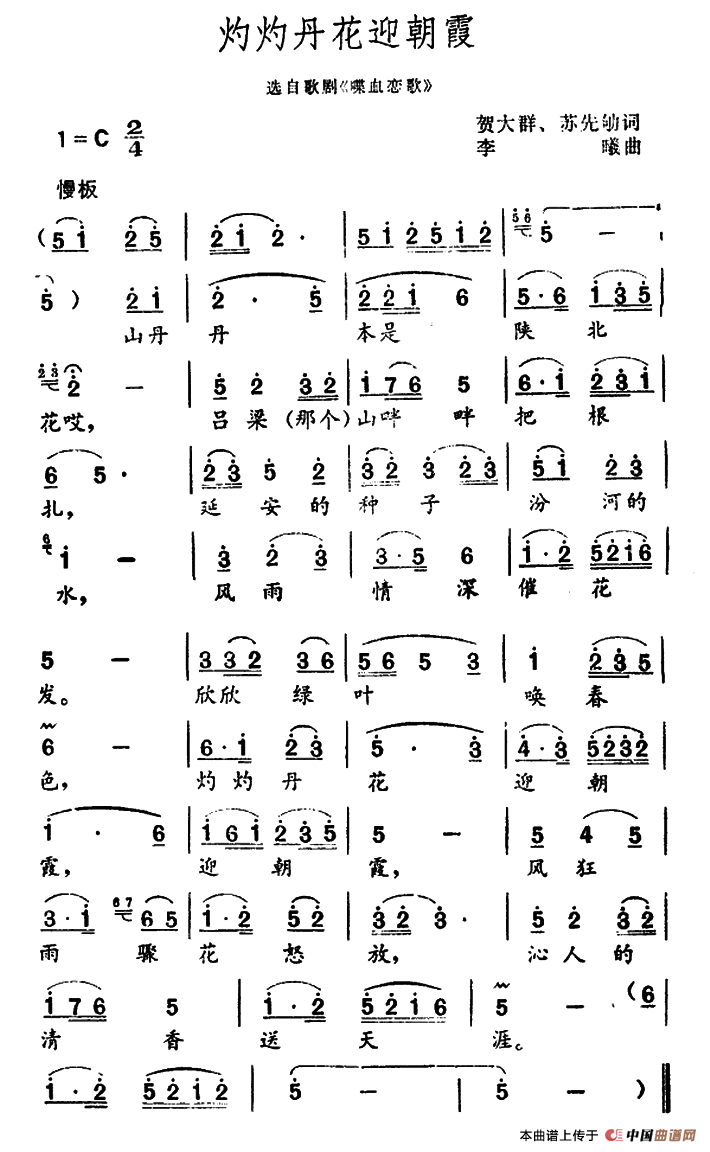 灼灼丹花迎朝霞
选自歌剧《喋血恋歌》
1=C 2/4
贺大群、苏先劬词
李 曦曲
慢板
(5 1 2 5 | 2 1 2 · | 5 1 2 5 1 2 | 5 6 5 — |
5 ) 2 1 | 2 · 5 | 2 2 1 6 | 5 · 6 1 3 5 |
山丹 丹 本是 陕 北
2 3 2 — | 5 2 3 2 | 1 7 6 5 | 6 · 1 2 3 1 |
花哎, 吕梁(那个)山畔 畔 把 根
6 5 · | 2 3 5 2 | 3 2 3 2 3 | 5 1 2 3 |
扎, 延 安的 种 子 汾 河的
6 1 — | 3 2 2 5 | 3 · 5 6 | 1 · 2 5 2 1 6 |
水, 风雨 情 深 催 花
5 — | 3 3 2 3 6 | 5 6 5 3 | 1 2 3 5 |
发。 欣欣 绿 叶 唤 春
6 — | 6 · 1 2 3 | 5 · 3 | 4 · 3 5 2 3 2 |
色, 灼灼丹 花 迎 朝
1 · 6 | 1 6 1 2 3 5 | 5 — | 5 4 5 |
霞, 迎 朝 霞, 风狂
3 · 1 6 7 6 5 | 1 · 2 5 2 | 3 2 3 · | 5 2 3 2 |
雨 骤 花 怒 放, 沁人的
1 7 6 5 | 1 · 2 5 2 1 6 | 5 — (6 |
清 香 送 天 涯。
1 · 2 5 2 1 2 | 5 — | 5 — ) ‖
本曲谱上传于 中国曲谱网